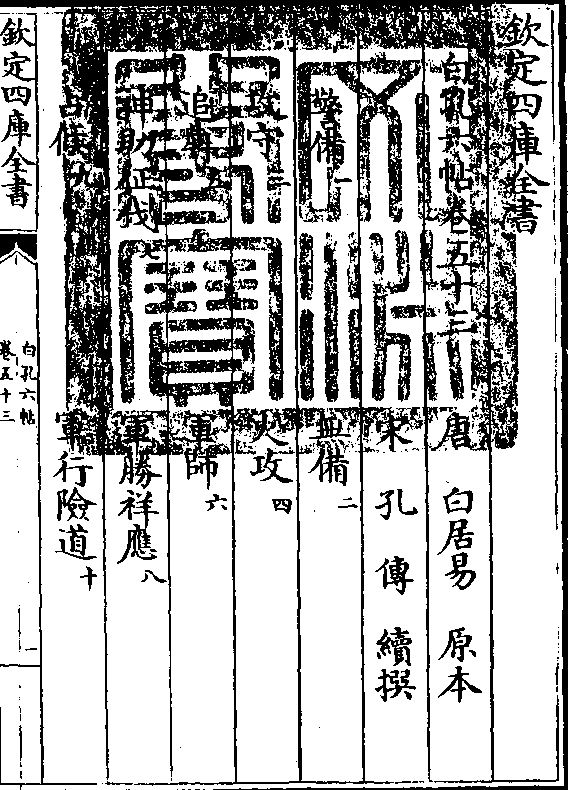 欽定四庫全書
白孔六帖卷五十三
唐 白居易 原本
宋 孔傳 續撰
警備一 無備二
攻守三 火攻四
追奔五 軍師六
神助征伐七 軍勝祥應八
占候九 軍行險道十
欽定四庫全書
白孔六帖
卷五十三
一
文淵閣寶